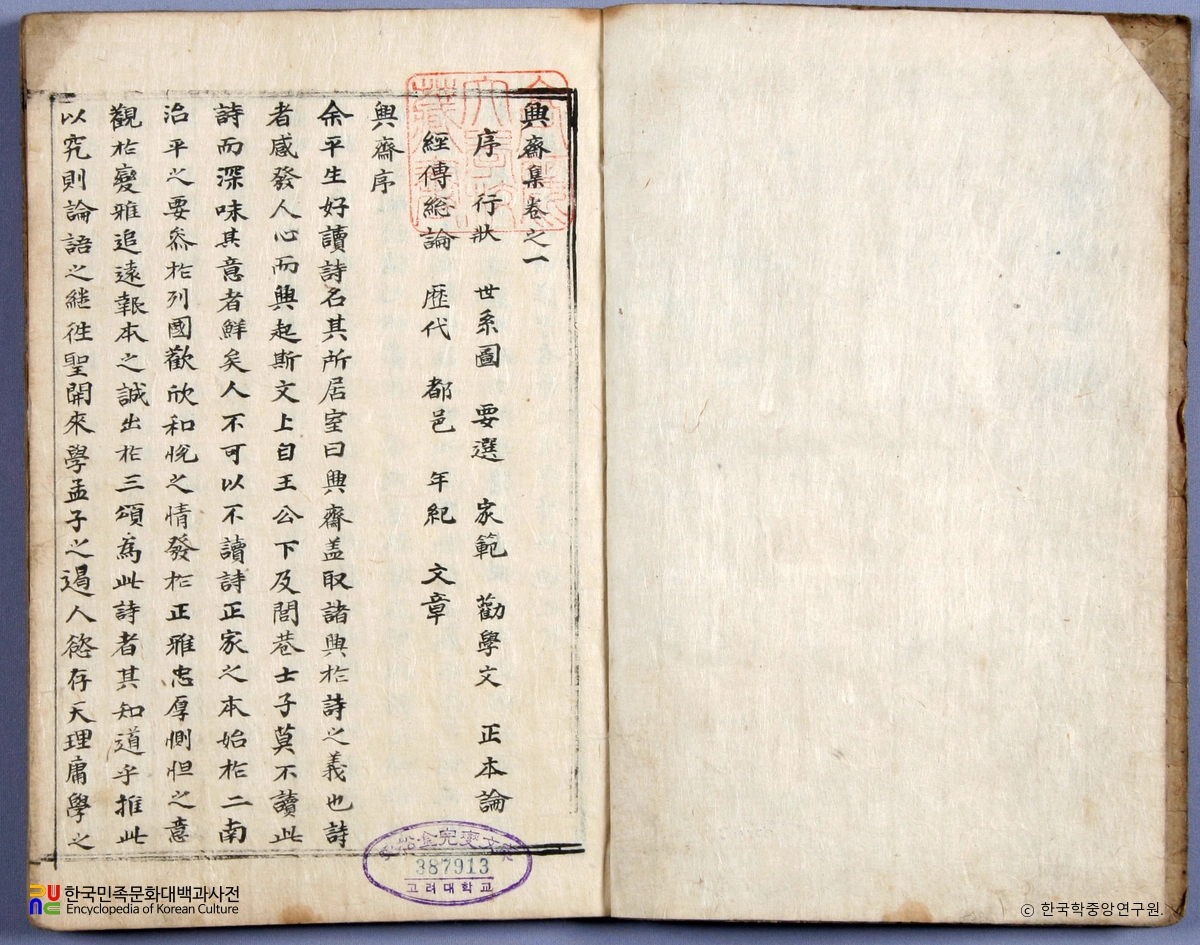 興齋集卷之一
序 行狀 世系圖 要選 家範 勸學文 正本論
經傳総論 歷代 都邑 年紀 文章
興齋序
余平生好讀詩名其所居室曰興齋盖取諸興於詩之義也詩
者感發人心而興起斯文上自王公下及閭巷士子莫不讀此
詩而深味其意者鮮矣人不可以不讀詩正家之本始於二南
治平之要叅於列國歡欣和悅之情發於正雅忠厚惻怛之意
觀於變雅追遠報本之誠出於三頌爲此詩者其知道乎推此
以究則論語之継徃聖開來學孟子之遏人慾存天理庸學之
387913
고려대학교
한국민족문화대백과사전
Encyclopedia of Korean Culture
© 한국학중앙연구원.